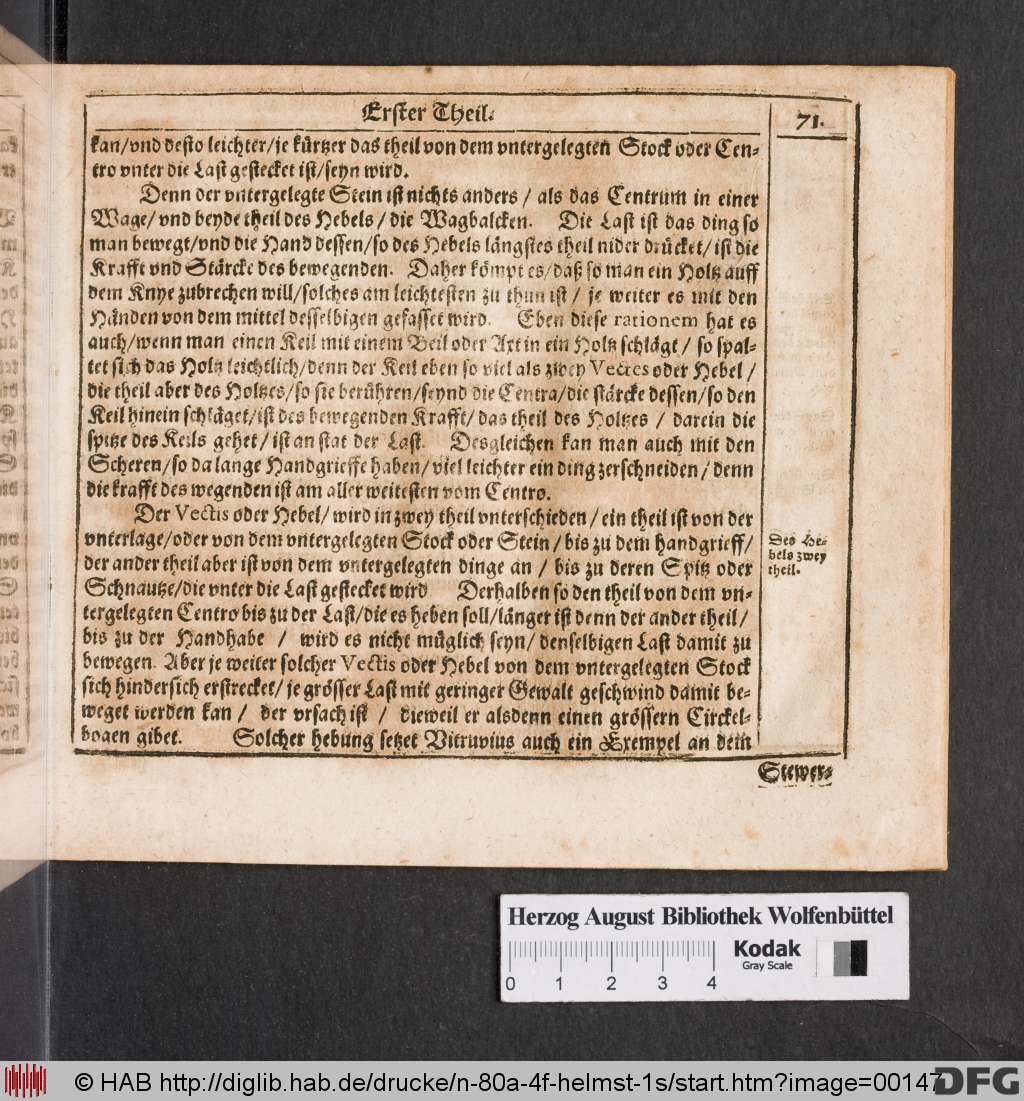 Erster Theil.
71.
kan/vnd desto leichter/je kürtzer das theil von dem vntergelegten Stock oder Cen-
tro vnter die Last gestecket ist/seyn wird.
Denn der vntergelegte Stein ist nichts anders / als das Centrum in einer
Wage/ vnd beyde theil des Hebels / die Wagbalcken. Die Last ist das ding so
man bewegt/vnd die Hand dessen/so des Hebels längstes theil nider drücket/ ist die
Krafft vnd Stärcke des bewegenden. Daher kömpt es/daß so man ein Holtz auff
dem Knye zubrechen will/solches am leichtesten zu thun ist / je weiter es mit den
Händen von dem mittel desselbigen gefasset wird. Eben diese rationem hat es
auch/wenn man einen Keil mit einem Beil oder Axt in ein Holtz schlägt / so spal-
tet sich das Holtz leichtlich/denn der Keil eben so viel als zwey Vectes oder Hebel /
die theil aber des Holtzes/so sie berühren/seynd die Centra/die stärcke dessen/so den
Keil hinein schläget/ist des bewegenden Krafft/ das theil des Holtzes / darein die
spitze des Keils gehet / ist an stat der Last. Desgleichen kan man auch mit den
Scheren/so da lange Handgrieffe haben/ viel leichter ein ding zerschneiden / denn
die krafft des wegenden ist am aller weitesten vom Centro.
Der Vectis oder Hebel/ wird in zwey theil vnterschieden / ein theil ist von der
vnterlage/oder von dem vntergelegten Stock oder Stein / bis zu dem handgrieff/
der ander theil aber ist von dem vntergelegten dinge an / bis zu deren Spitz oder
Schnautze/die vnter die Last gestecket wird Derhalben so den theil von dem vn-
tergelegten Centro bis zu der Last/die es heben soll/länger ist denn der ander theil/
bis zu der Handhabe / wird es nicht müglich seyn/ denselbigen Last damit zu
bewegen. Aber je weiter solcher Vectis oder Hebel von dem vntergelegten Stock
sich hindersich erstrecket/ je grösser Last mit geringer Gewalt geschwind damit be-
weget werden kan / der vrsach ist / dieweil er alsdenn einen grössern Circkel-
bogen gibet. Solcher hebung setzet Vitruvius auch ein Exempel an dem
Des He-
bels zwey
theil.
Stewer-
Herzog August Bibliothek Wolfenbüttel
0 1 2 3 4
Kodak
Gray Scale
© HAB http://diglib.hab.de/drucke/n-80a-4f-helmst-1s/start.htm?image=00147
DFG